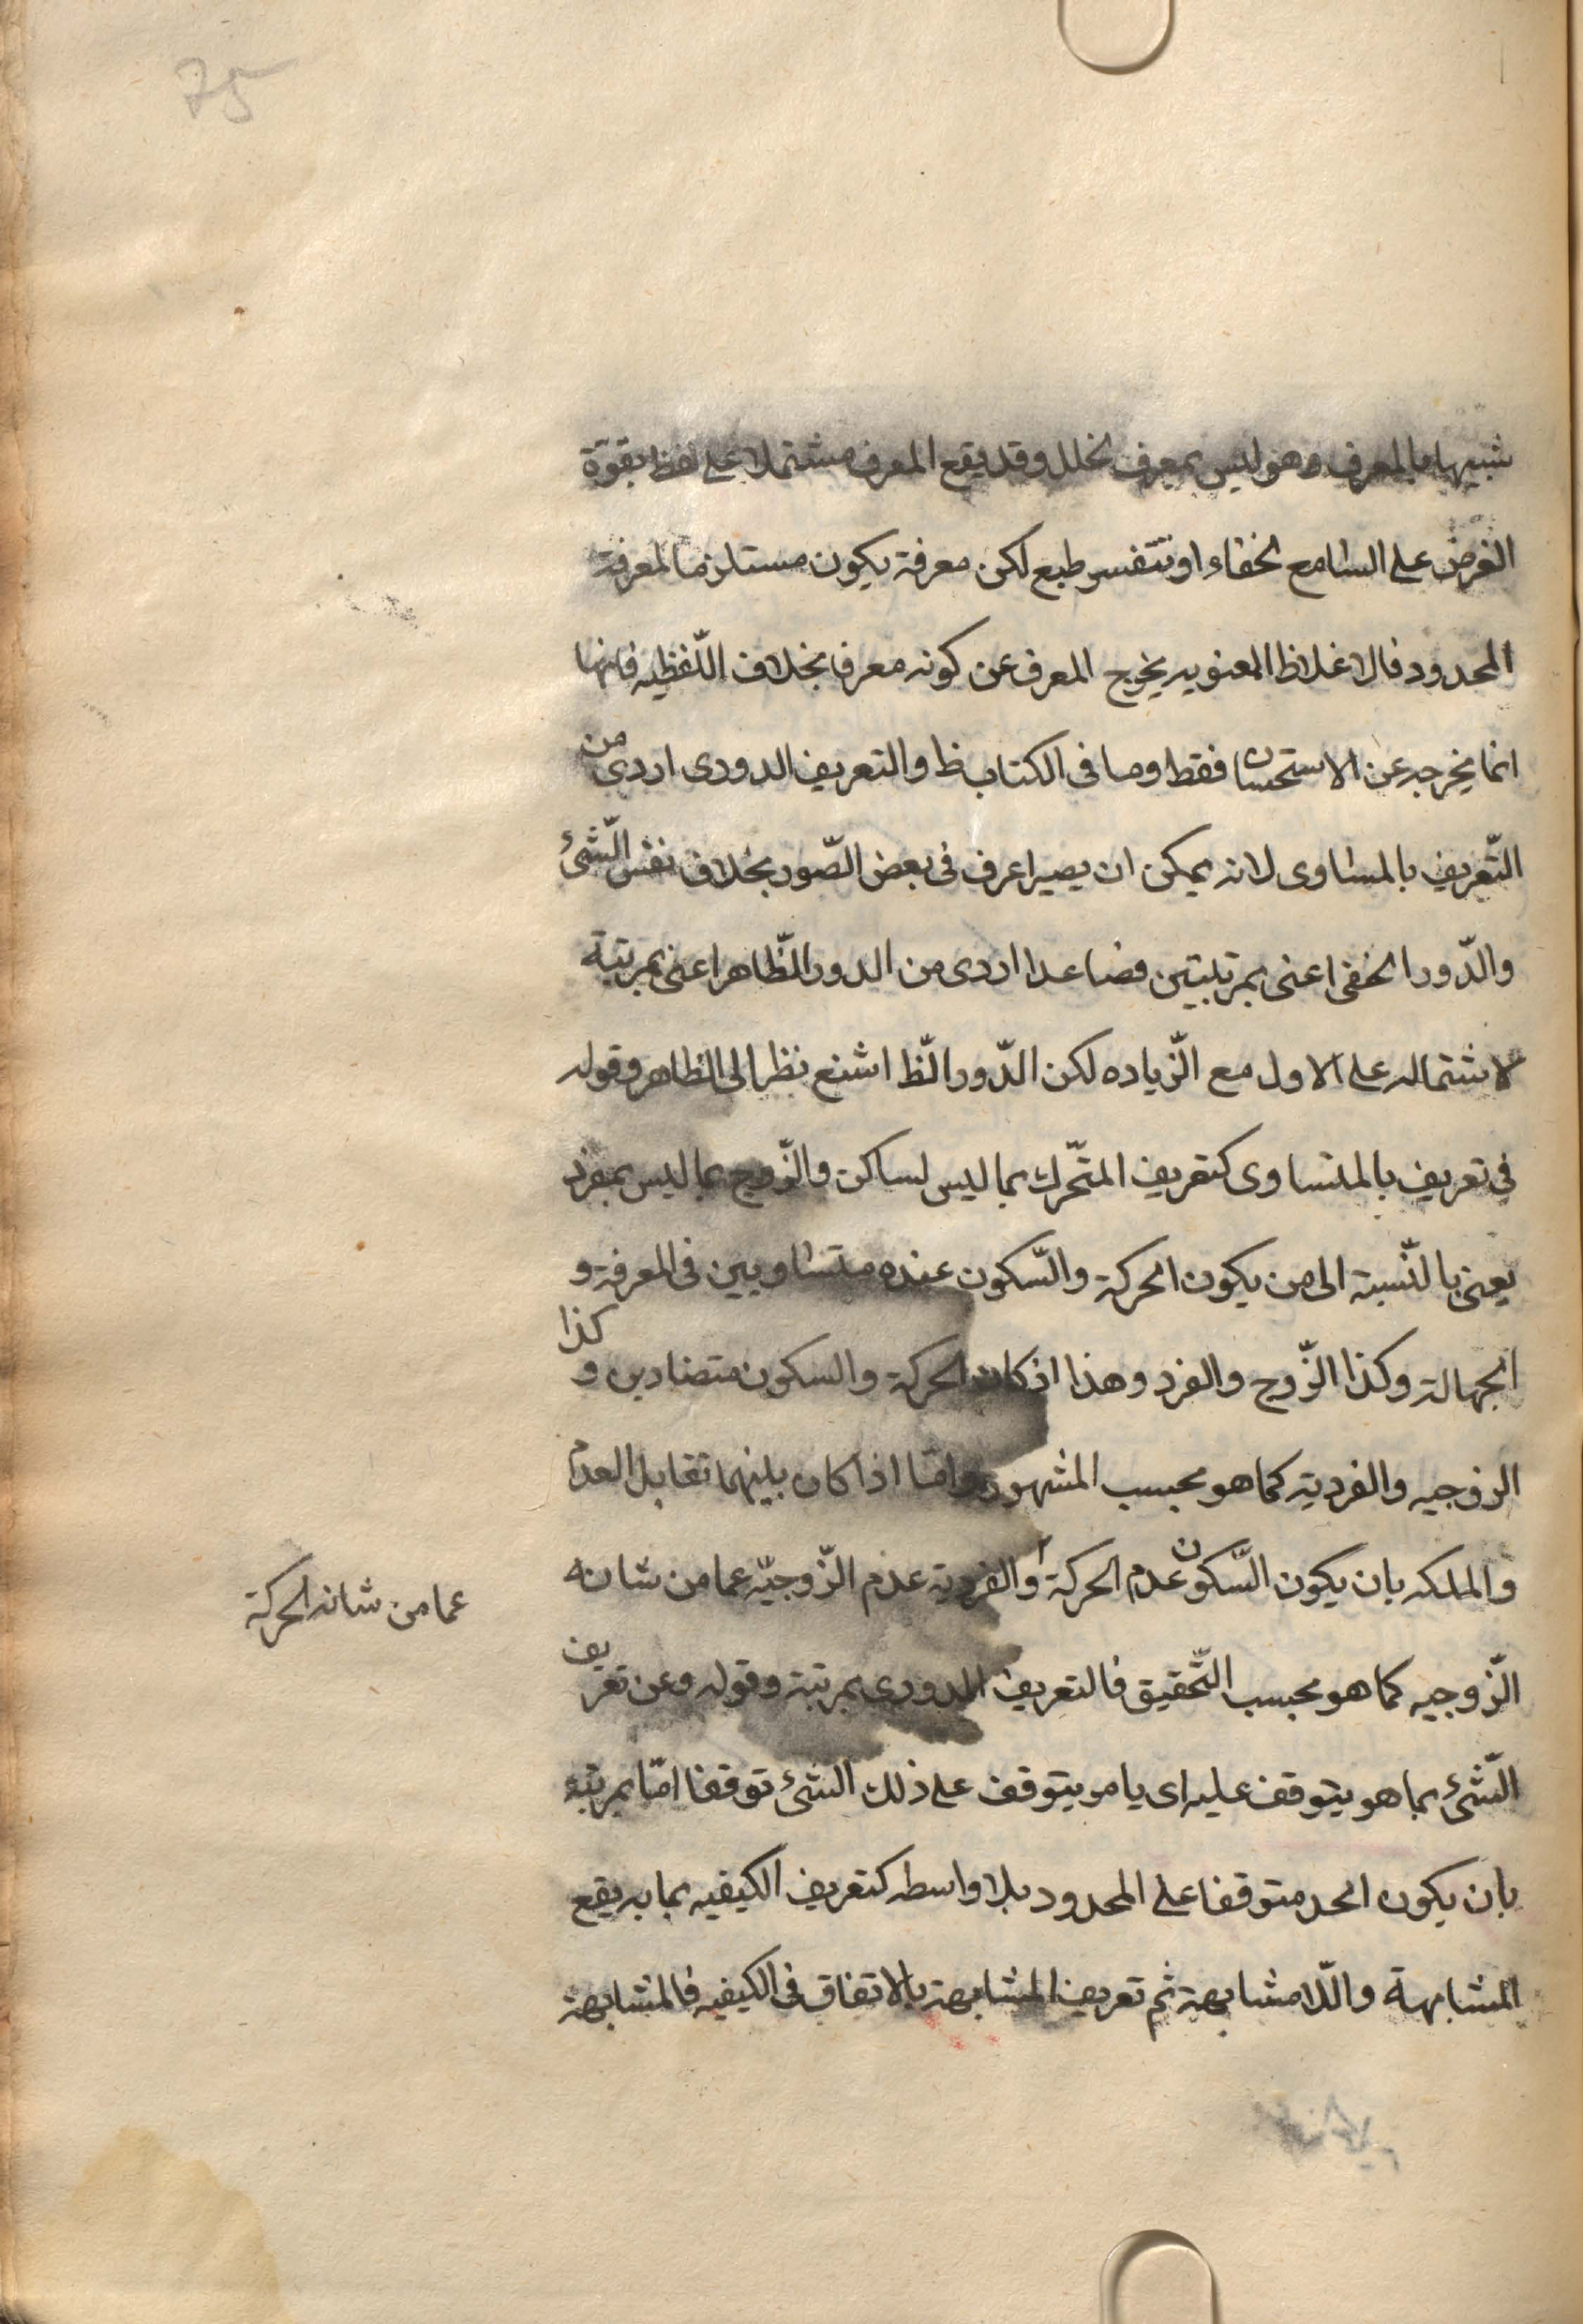 75
شبيها بالمعرف وهو ليس بمعرف لخلل وقد يقع المعرف مشتملا على لفظ يفوة
الغرض على السامع لخفاء او تنفر طبع لكن معرفة يكون مستلزما لمعرفة
المحدود فالاغلاظ المعنويه يخرج المعرف عن كونه معرفا بخلاف اللّفظيه فانها
انما يخرجه عن الاستحسان فقط وما فى الكتاب ظ والتعريف الدورى اردى من
التّعريف بالمساوى لانه يمكن ان يصير اعرف فى بعض الصّور بخلاف نفس الشّئ
والدّور الخفى اعنى بمرتبتين فصاعدا اردى من الدور الظّاهر اعنى بمرتبة
لاشتماله على الاول مع الزّياده لكن الدّور الظّ اشنع نظرا الى الظاهر وقوله
فى تعريف بالمتساوى كتعريف المتحّرك بما ليس لساكن والزّوج بما ليس بفرد
يعنى بالنّسبة الى من يكون الحركة والسّكون عنده متساويين فى المعرفة و
الجهالة وكذا الزّوج والفرد وهذا اذ كان الحركة والسكون متضادين و كذا
الزوجيه والفرديّه كما هو بحسب المشهور وامّا اذا كان بينهما تقابل العدم
والملكه بان يكون السّكون عدم الحركة والفردية عدم الزّوجيّه عما من شانه
عما من شانه الحركة
الزّوجيه كما هو بحسب التّحقيق فالتعريف الدورى بمرتبة وقوله وعن تعريف
الشّئ بما هو يتوقف عليه اى بامر يتوقف على ذلك الشئ توقفا امّا بمرتبة
بان يكون الحد متوقفا على المحدود بلا واسطه كتعريف الكيفيه بما به يقع
المشابهة والّلامشابهة ثم تعريف المشابهة بالاتفاق فى الكيفيه فالمشابهة